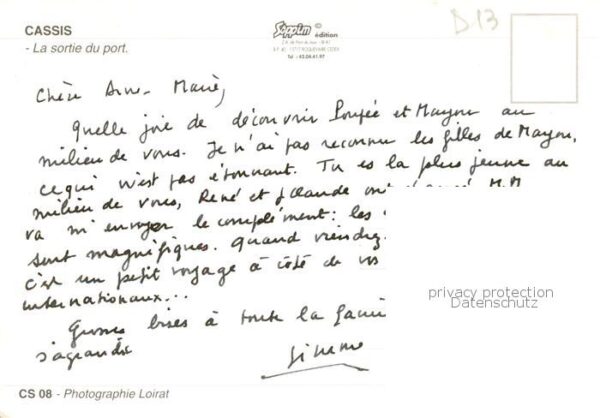 CASSIS
- La sortie du port.
Sappim © édition
D13
Chère Anne-Marie,
Quelle joie de découvrir Poupée et Mayou au
milieu de vous. Je n'ai pas reconnu les filles de Mayou,
ce qui n'est pas étonnant. Tu es la plus jeune au
milieu de vous, René et Jolande ont M.M
va m'envoyer le complément: les
sont magnifiques. Quand viendrez
c'est un petit voyage à côté de vos
internationaux...
Grosses bises à toute la
s'agrandit
privacy protection
Datenschutz
CS 08 - Photographie Loirat